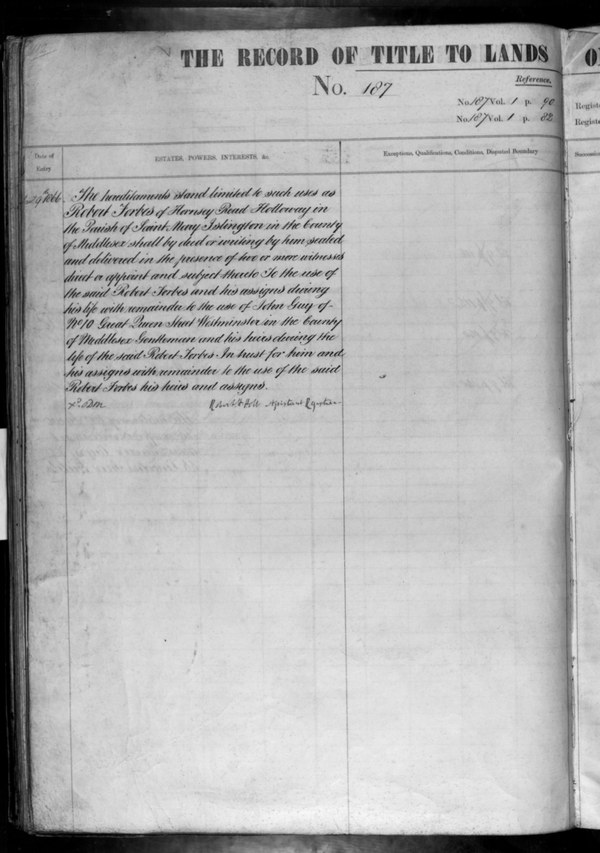 THE RECORD OF TITLE TO LANDS
No. 187
Reference.
No. 187 Vol. 1 p. 90
No. 187 Vol. 1 p. 82
Date of Entry
ESTATES, POWERS, INTERESTS, &c.
Exceptions, Qualifications, Conditions, Disputed Boundary
1866
The hereditaments stand limited to such uses as
Robert Forbes of Hornsey Road Holloway in
the Parish of Saint Mary Islington in the County
of Middlesex shall by deed or writing by him sealed
and delivered in the presence of two or more witnesses
direct or appoint and subject thereto To the use of
the said Robert Forbes and his assigns during
his life with remainder to the use of John Guy of
No. 10 Great Queen Street Westminster in the County
of Middlesex Gentleman and his heirs during the
life of the said Robert Forbes In trust for him and
his assigns with remainder to the use of the said
Robert Forbes his heirs and assigns.
Holt Assistant Registrar
O
Regist
Regist
Succession